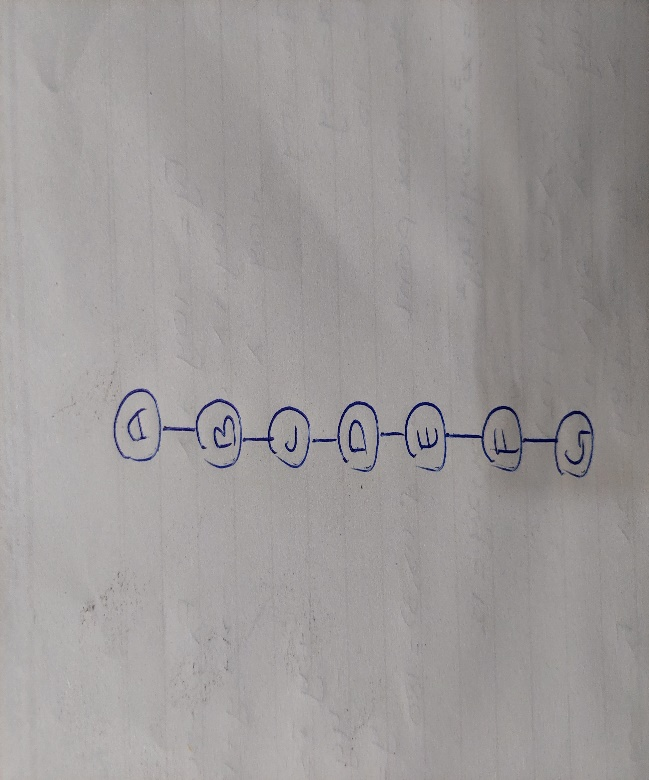 A
B
C
D
E
F
G